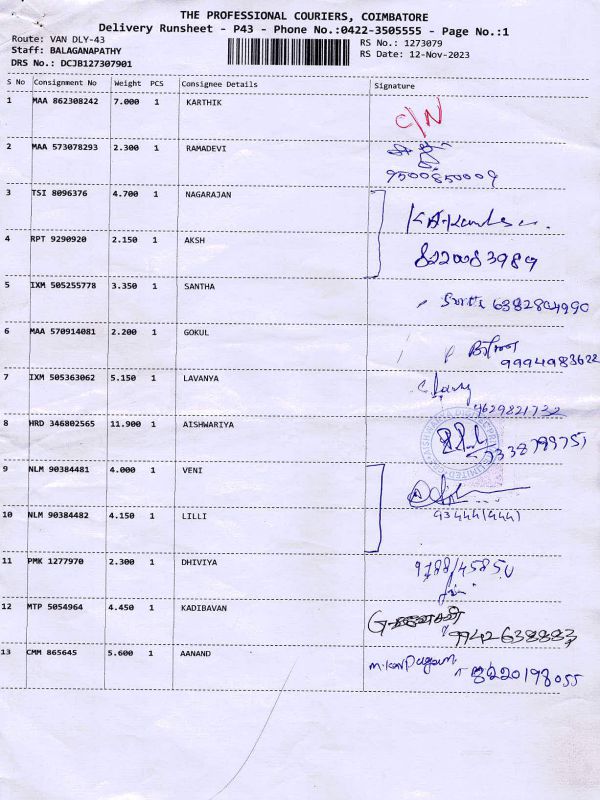 THE PROFESSIONAL COURIERS, COIMBATORE
Delivery Runsheet - P43 - Phone No.:0422-3505555 - Page No.:1
Route: VAN DLY-43
Staff: BALAGANAPATHY
DRS No.: DCJB127307901
RS No.: 1273079
RS Date: 12-Nov-2023
S No Consignment No Weight PCS Consignee Details Signature
1 MAA 862308242 7.000 1 KARTHIK C/N
2 MAA 573078293 2.300 1 RAMADEVI
9500850009
3 TSI 8096376 4.700 1 NAGARAJAN
4 RPT 9290920 2.150 1 AKSH 8220083989
5 IXM 505255778 3.350 1 SANTHA 6382804990
6 MAA 570914081 2.200 1 GOKUL
9994983622
7 IXM 505363062 5.150 1 LAVANYA
8 HRD 346802565 11.900 1 AISHWARIYA
9 NLM 90384481 4.000 1 VENI
10 NLM 90384482 4.150 1 LILLI
11 PMK 1277970 2.300 1 DHIVIYA
12 MTP 5054964 4.450 1 KADIBAVAN
9942638883
13 CMM 865645 5.600 1 AANAND M.Karpagam 8220198055